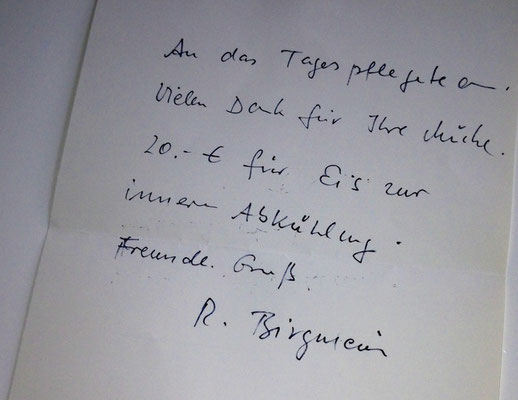 An das Tagespflegeteam.
Vielen Dank für Ihre Mühe.
20.- € für Eis zur
inneren Abkühlung.
Freundl. Gruß.
R.